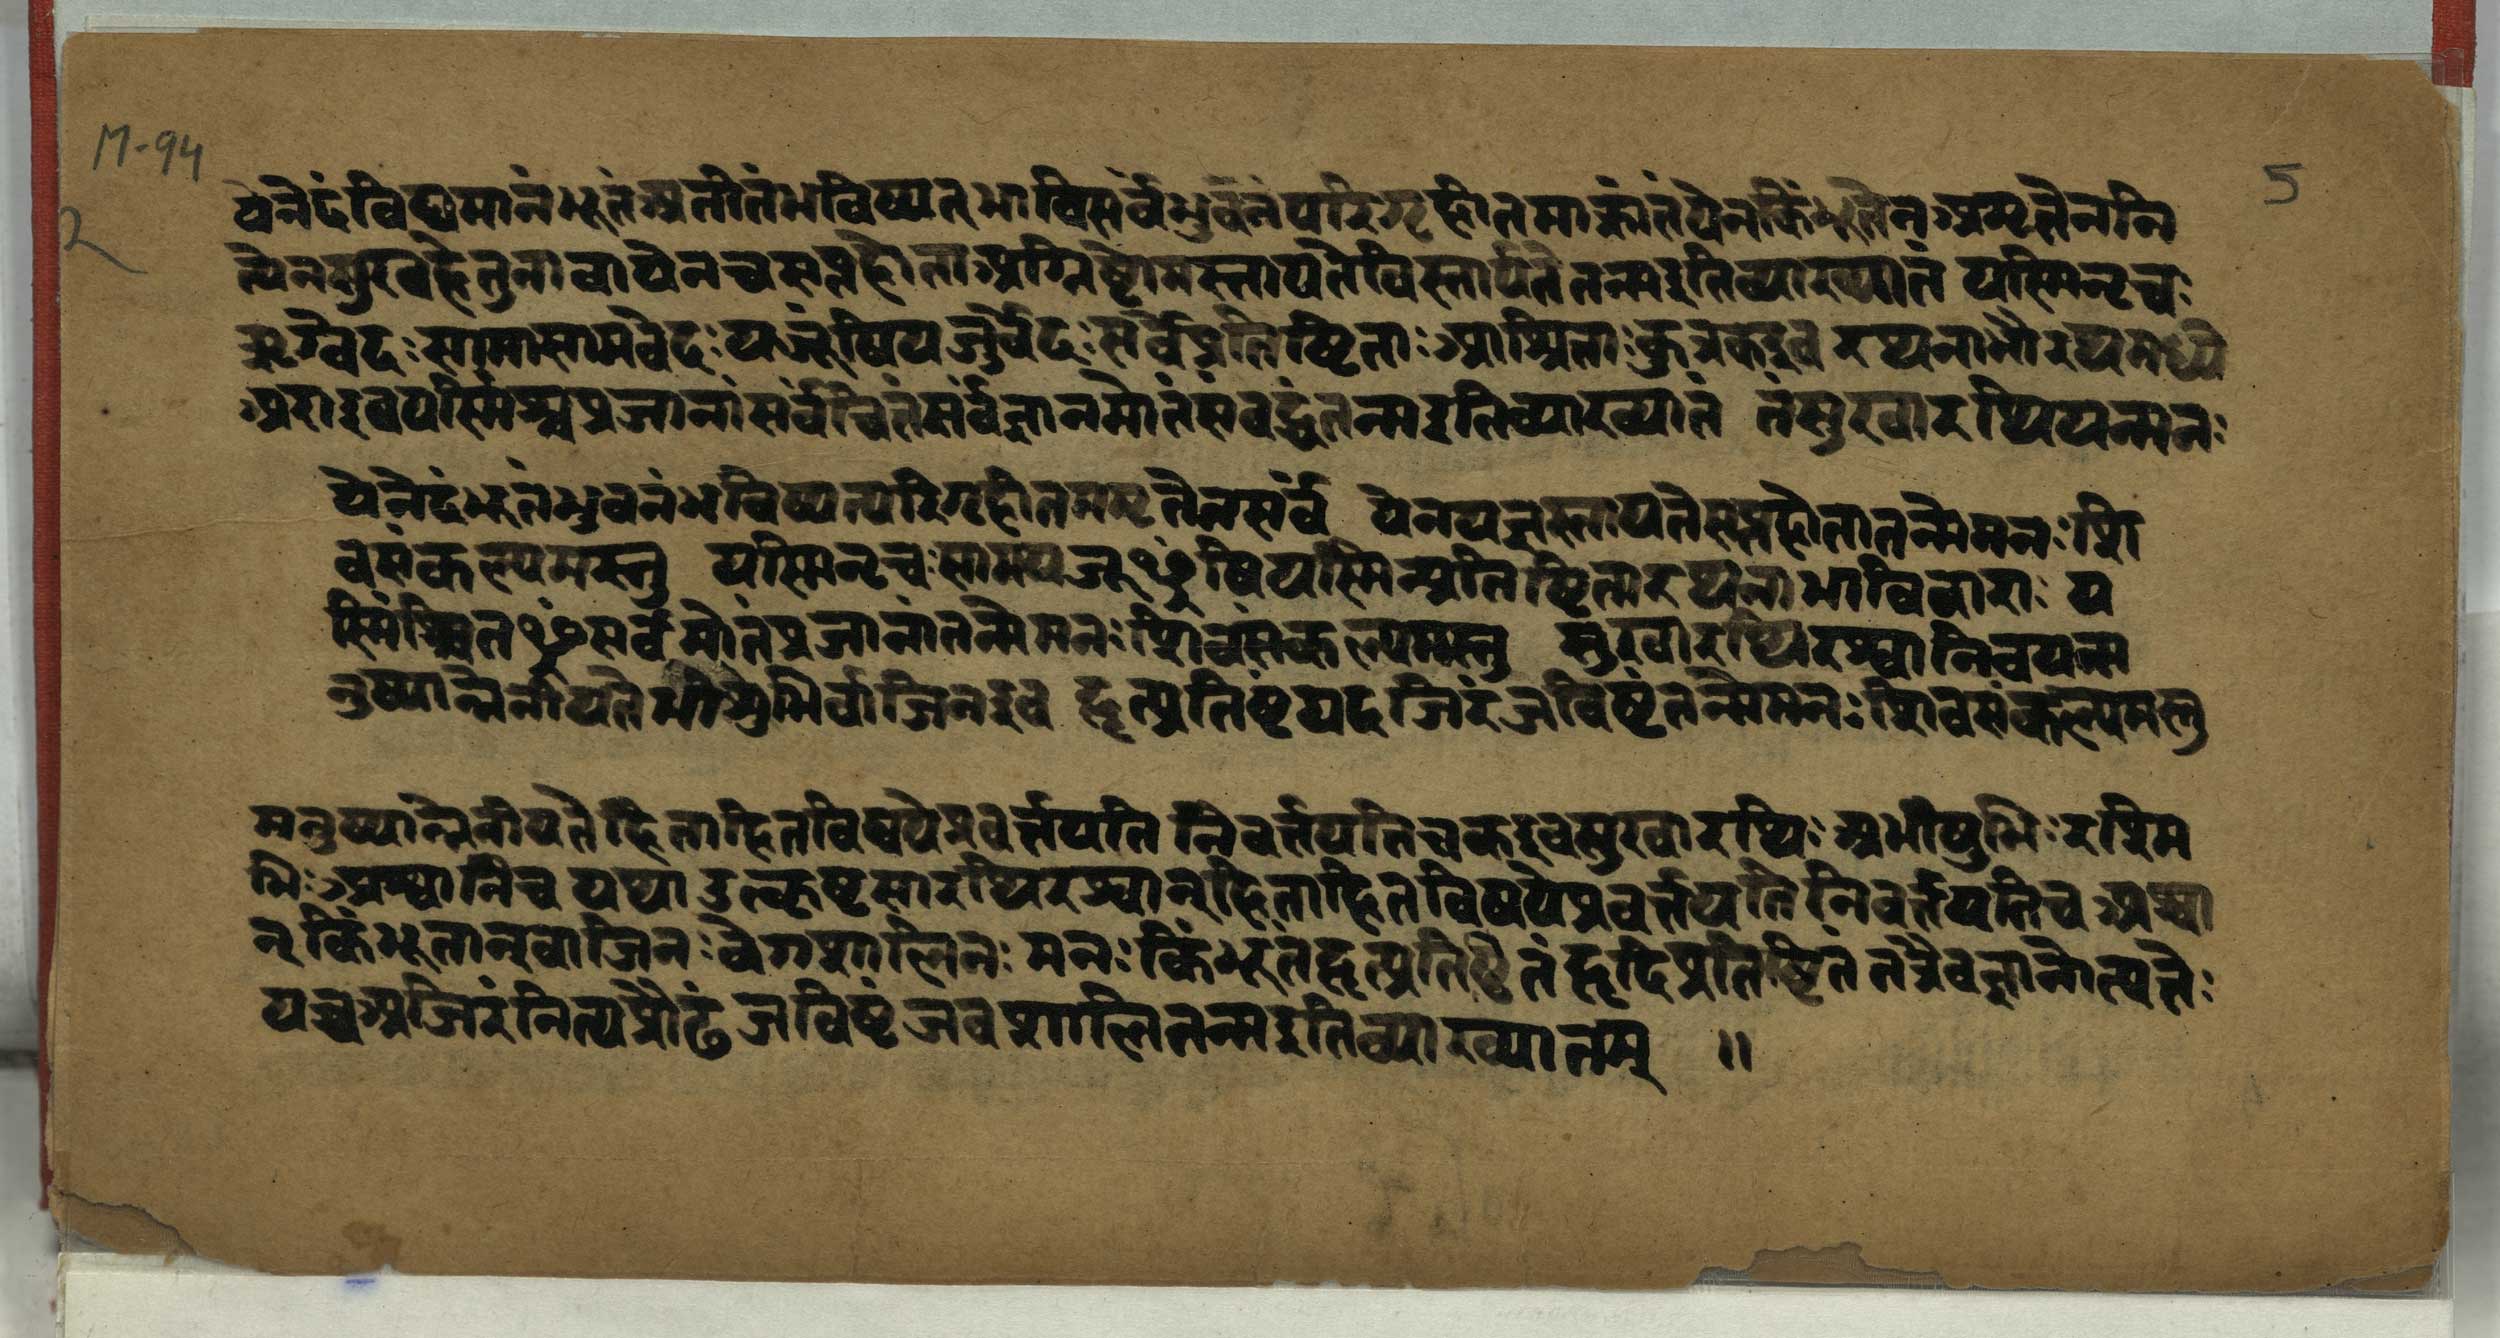 M-94
5
2
येनेदं विद्यमानं भूतं अतीतं भविष्यत् भावि सर्वं भुवनं परिगृहीतमाक्रांतं येन किंभूतेन अमृतेन नि
त्येन सुखहेतुना वा येन च सप्तहोता अग्निष्टोमस्तायते विस्तार्यते तन्म इति व्याख्यातं यस्मिनृचः
ऋग्वेदः सामासामवेदः यजूंषि यजुर्वेदः सर्वे प्रतिष्टिताः आश्रिताः कुत्र क इव रथनाभौ रथमध्ये
अरा इव यस्मिंश्च प्रजानां सर्वं चितं सर्वज्ञानमोतं संबद्धं तन्म इति व्याख्यातं तं सुखारथि यन्मनः
येनेदं भूतं भुवनं भविष्यत्परिगृहीतममृतेन सर्वं येन यज्ञस्तायते सप्तहोता तन्मे मनः शि
वसंकल्पमस्तु यस्मिनृचः साम यजूᳪषि यस्मिन्प्रतिष्टिता रथनाभाविवाराः य
स्मिंश्चितᳪसर्वमोतं प्रजानां तन्मे मनः शिवसंकल्पमस्तु सुखारथिरश्वानिव यन्म
नुष्यान्नेनीयतेभीशुभिर्वाजिन इव हृत्प्रतिष्टं यदजिरं जविष्टं तन्मे मनः शिवसंकल्पमस्तु
मनुष्यान्नेनीयते हिताहितविषये प्रवर्त्तयति निवर्त्तयति च क इव सुखारथिः अभीषुभिः रश्मि
भिः अश्वानिव यथा उत्कृष्टसारथिरश्वान् हिताहितविषये प्रवर्त्तयति निवर्त्तयति च अश्वा
न् किंभूतान् वाजिनः वेगशालिनः मनः किंभूतं हृत्प्रतिष्टितं हृदि प्रतिष्टितं तत्रैव ज्ञानोत्पतेः
यच्च अजिरं नित्यप्रौढं जविष्टं जवशालि तन्म इति व्याख्यातम् ॥